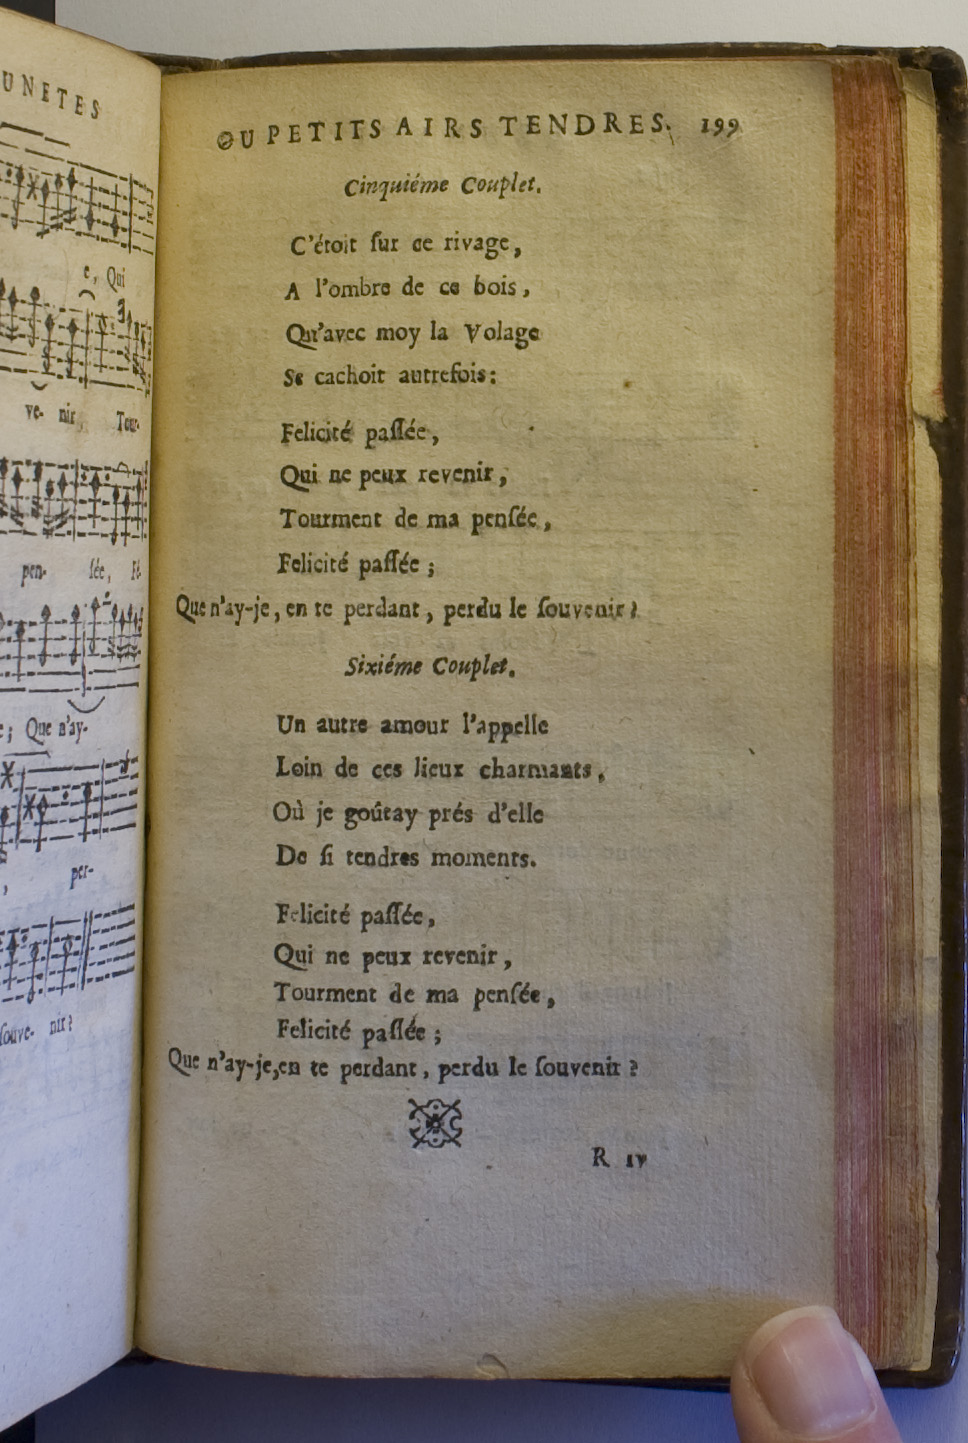 UNETES
e, Qui
ve- nir, Tour-
pen- ſée, Fé-
e; Que n'ay-
, per-
ſouve- nir?
OU PETITS AIRS TENDRES. 199
Cinquiéme Couplet.
C'étoit ſur ce rivage,
A l'ombre de ce bois,
Qu'avec moy la Volage
Se cachoit autrefois:
Felicité paſſée,
Qui ne peux revenir,
Tourment de ma penſée,
Felicité paſſée;
Que n'ay-je, en te perdant, perdu le ſouvenir?
Sixiéme Couplet.
Un autre amour l'appelle
Loin de ces lieux charmants,
Où je goûtay prés d'elle
De ſi tendres moments.
Felicité paſſée,
Qui ne peux revenir,
Tourment de ma penſée,
Felicité paſſée;
Que n'ay-je, en te perdant, perdu le ſouvenir?
R iv